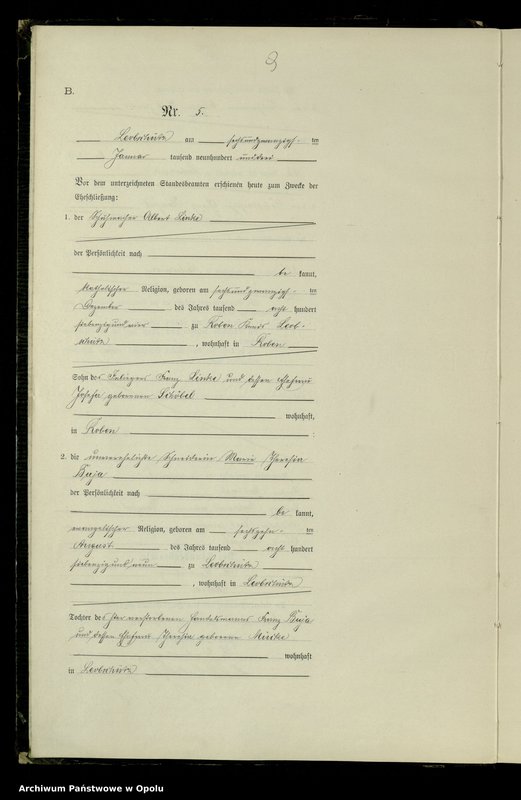 B.
Nr. 5.
Leobschütz am sechsundzwanzigsten
Januar tausend neunhundert und drei
Vor dem unterzeichneten Standesbeamten erschienen heute zum Zwecke der
Eheschließung:
1. der Schuhmacher Albert Linke
der Persönlichkeit nach
be kannt,
katholischer Religion, geboren am sechsundzwanzigsten
Dezember des Jahres tausend acht hundert
siebenzig und vier zu Roben Kreis Leob-
schütz, wohnhaft in Roben
Sohn des Franz Linke und dessen Ehefrau
Josefa geborenen
wohnhaft,
in Roben
2. die unverehelichte Schneiderin Marie Theresia
Buja
der Persönlichkeit nach
be kannt,
evangelischer Religion, geboren am sechszehnten
August des Jahres tausend acht hundert
siebenzig und neun zu Leobschütz
, wohnhaft in Leobschütz
Tochter des verstorbenen Handelsmanns Franz Buja
und dessen Ehefrau Theresia geborene
wohnhaft
in Leobschütz
Archiwum Państwowe w Opolu